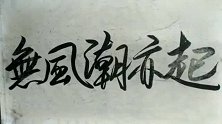 無風潮亦起